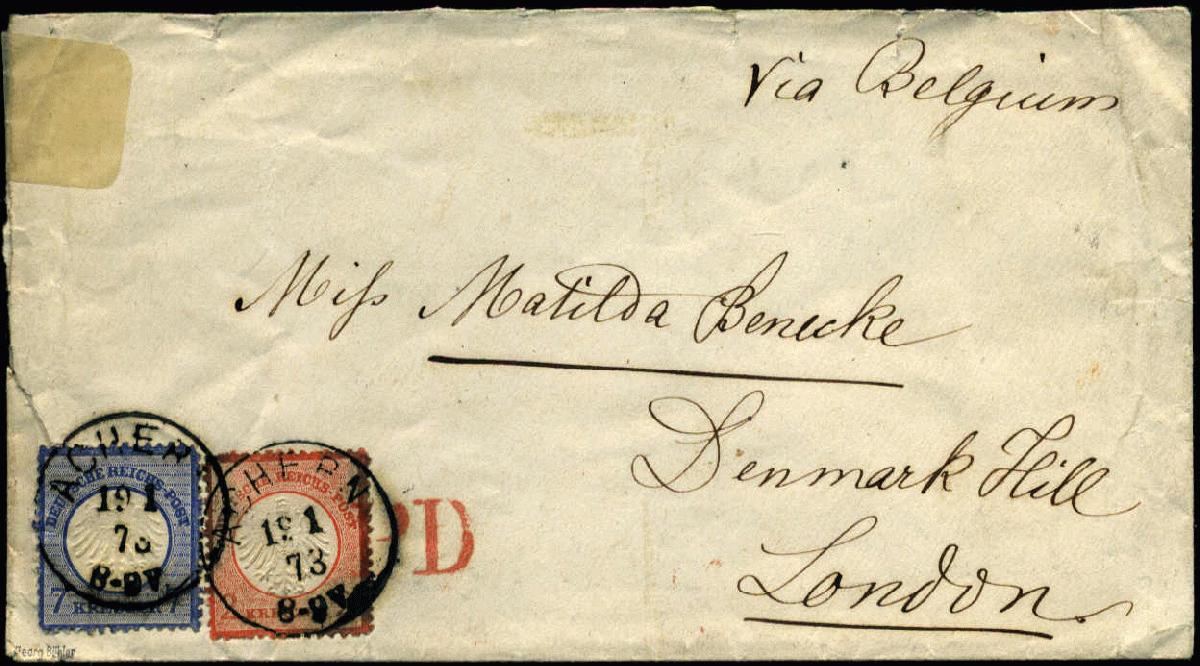 Via Belgium
Miſs Matilda Benecke
Denmark Hill
London
ACHERN
19 1
73
8-9V.
DEUTSCHE REICHS-POST
7 KREUZER 7
ACHERN
19 1
73
8-9V.
REICHS-POST
PD
Georg Bühler